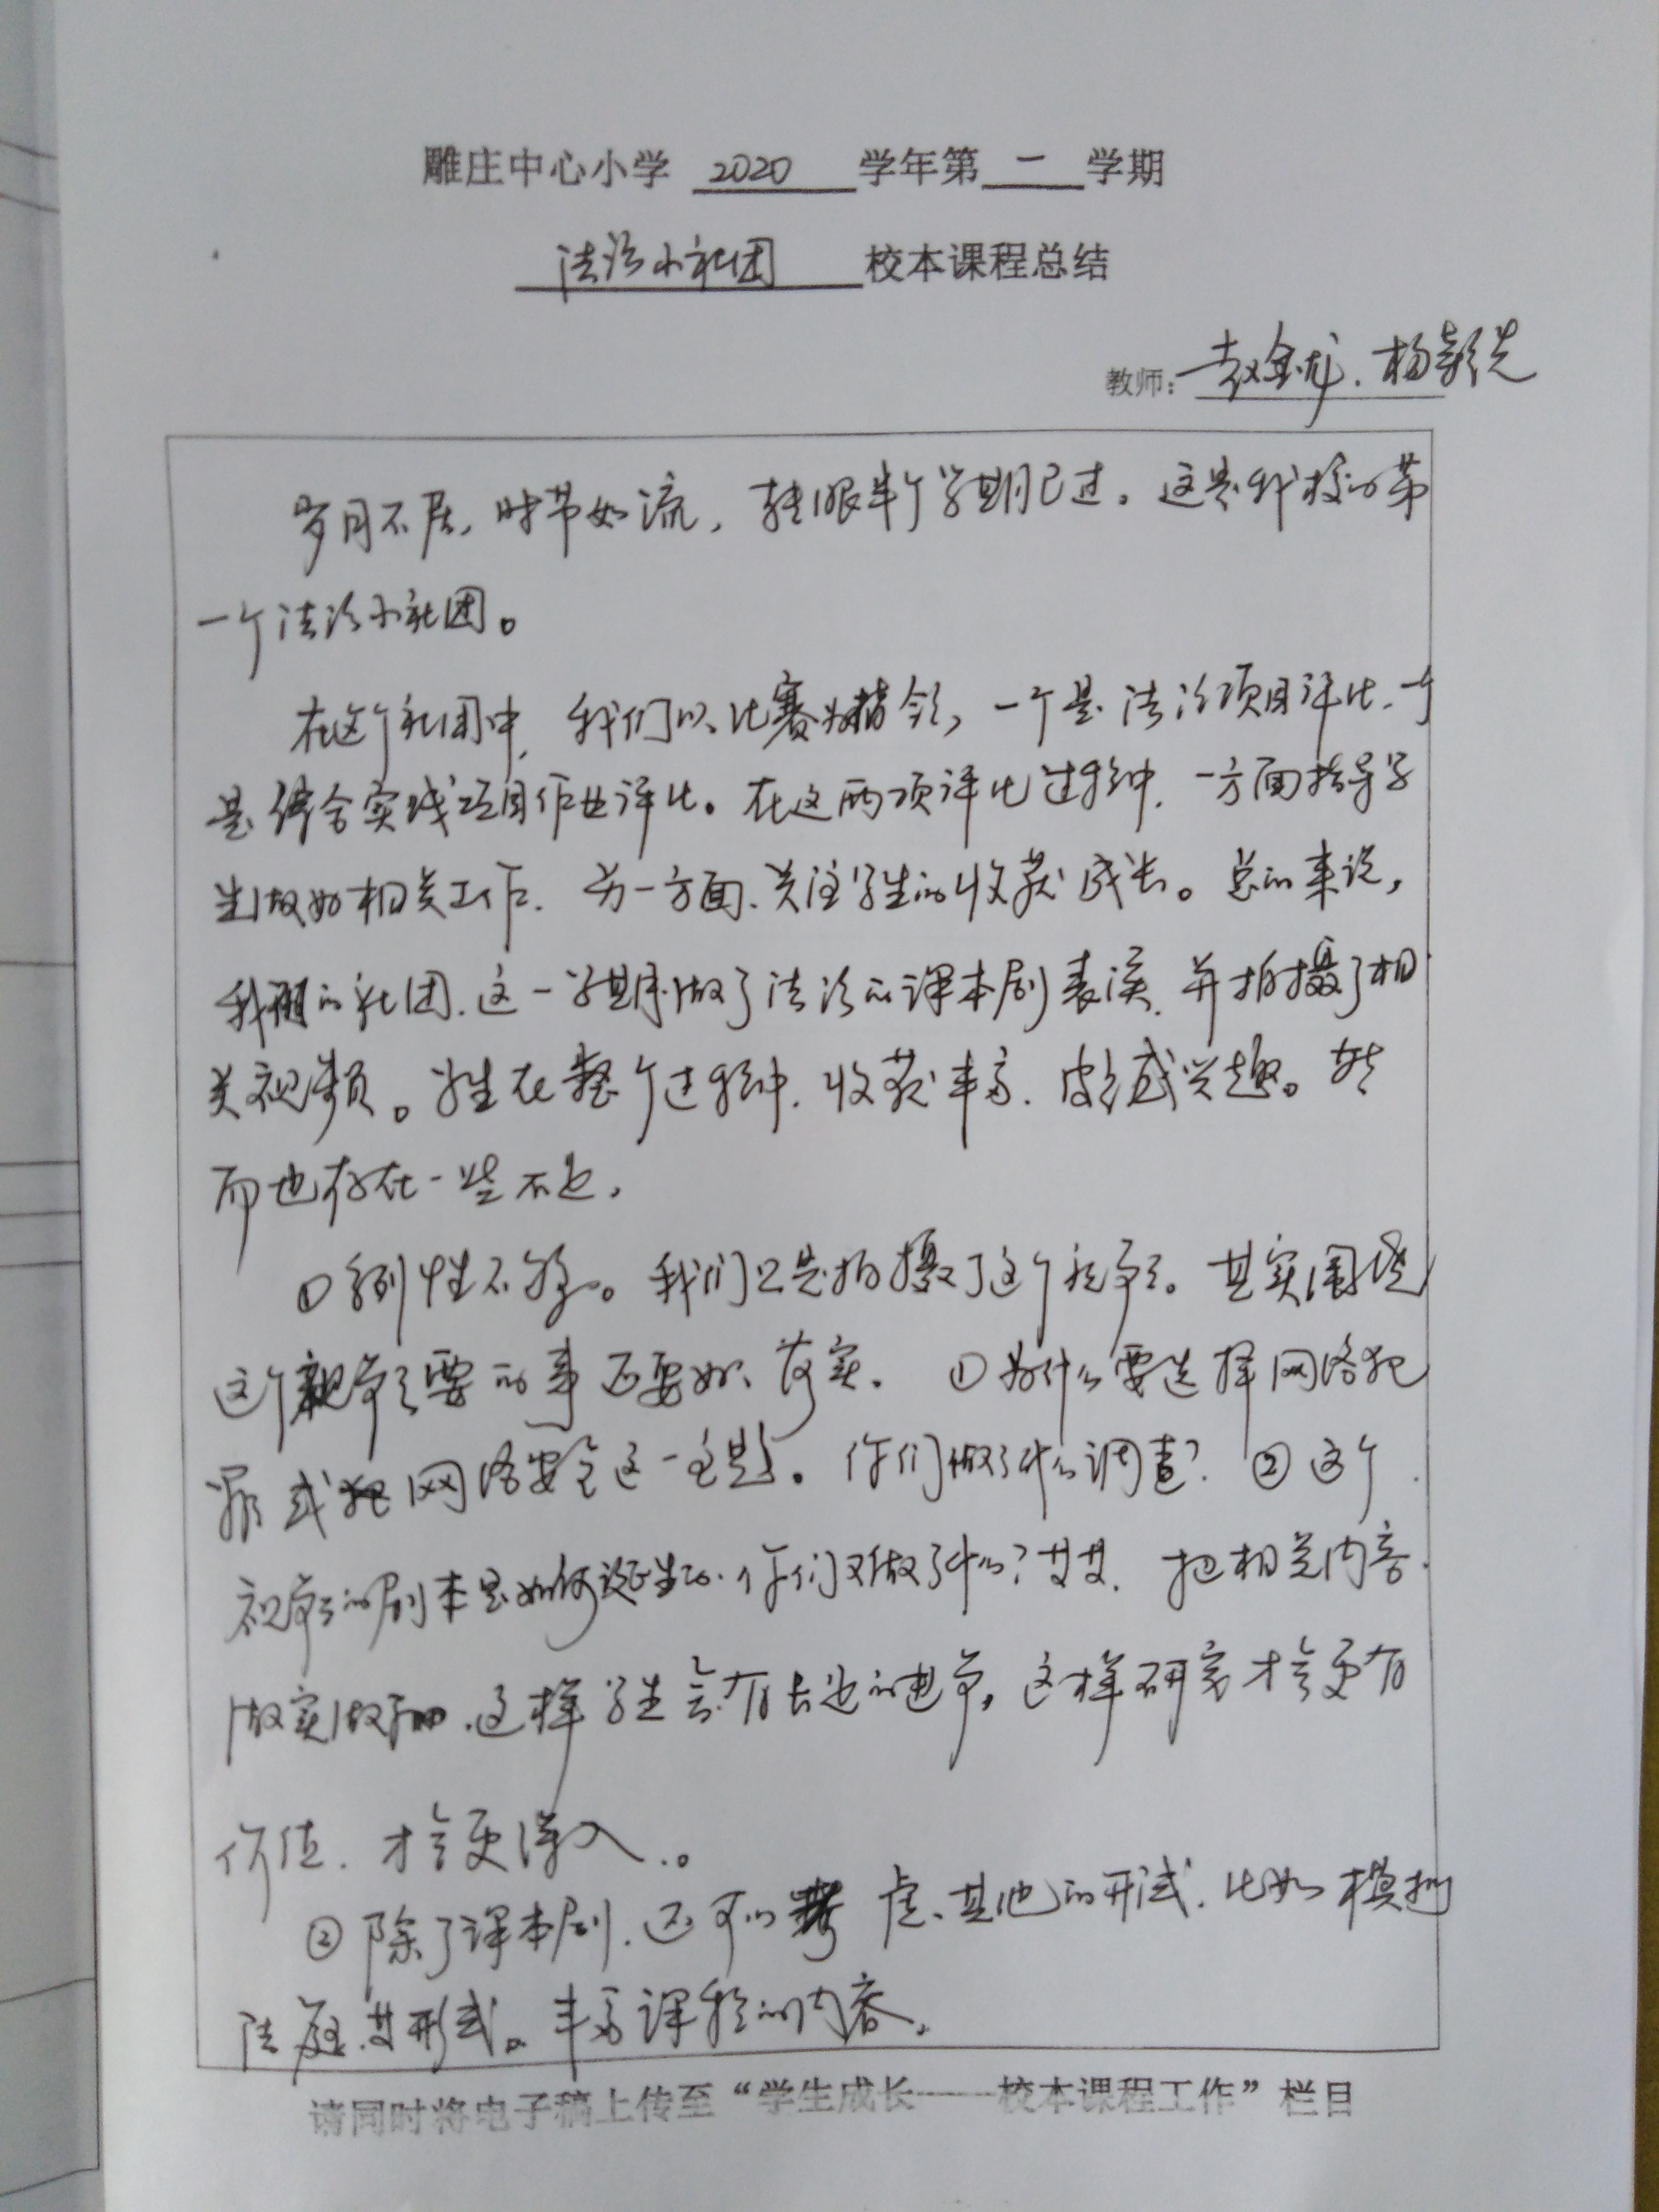 雕庄中心小学 2020 学年第 一 学期
法治小社团 校本课程总结
教师：赵金龙、杨彩先
岁月不居，时节如流，转眼半个学期已过。这是我校的第
一个法治小社团。
在这个社团中，我们以比赛为指领，一个是法治项目评比，一个
是综合实践项目作业评比。在这两项评比过程中，一方面指导学
生做好相关工作，另一方面、关注学生的收获成长。总的来说，
我们的社团，这一学期做了法治的课本剧表演，并拍摄了相
关视频。学生在整个过程中，收获丰富，颇感兴趣。然
而也存在一些不足，
①系列性不够。我们只是拍摄了这个视频。其实围绕
这个视频要的事还要如、落实。①为什么要选择网络犯
罪或 网络安全这一主题。你们做了什么调查？②这个
视频的剧本是如何诞生的，你们又做了什么？等等，把相关内容
做实做细，这样学生会有长足的进步，这样研究才会更有
价值，才会更深入。
②除了课本剧，还可以考虑、其他的形式，比如模拟
法庭等形式。丰富课程的内容。
请同时将电子稿上传至“学生成长——校本课程工作”栏目